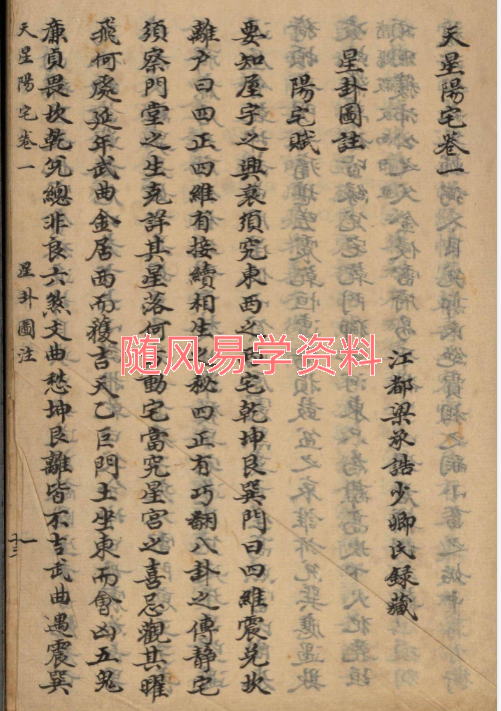 天星陽宅卷一
江都梁承誥少卿氏録藏
星卦圖註
陽宅賦
要知屋宇之興衰須究東西之宅乾坤艮巽門曰四維震兌坎
離户曰四正四維有接續相生之秘四正有巧翻八卦之傳静宅
須察門堂之生克詳其星落何宫動宅當究星宫之喜忌觀其曜
飛何處延年武曲金居西而獲吉天乙巨門土坐東而會凶五鬼
廉貞畏坎乾兌總非良六煞文曲愁坤艮離皆不吉武曲遇震巽
天星陽宅卷一
星卦圖注
一
十三
随风易学资料